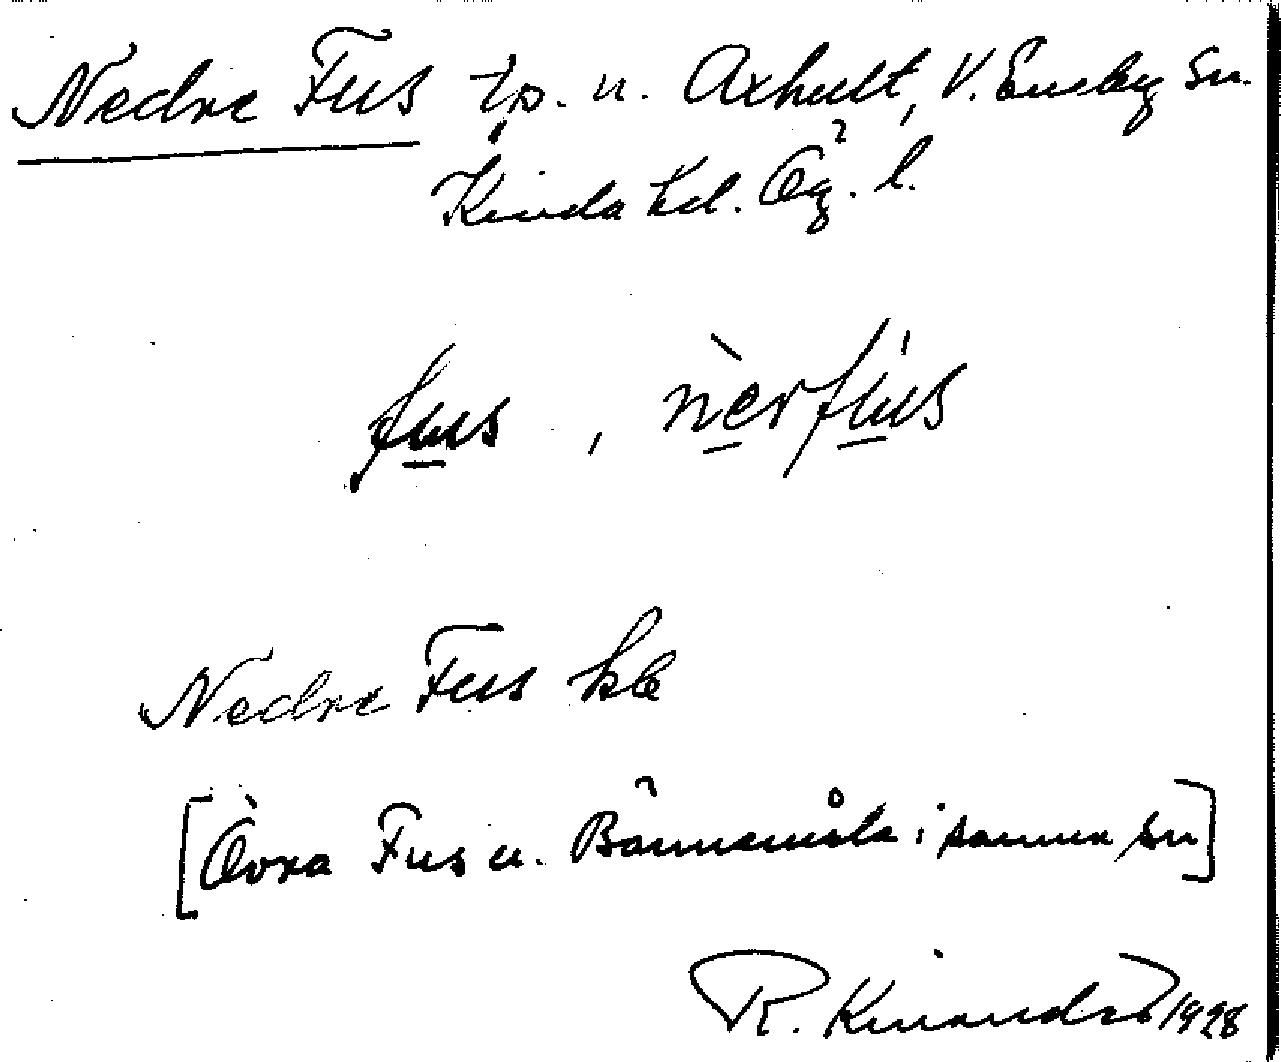 Nedre Fus tp. u. Axhult, V. Eneby sn.
Kinda hd. Ög. l.
fus, nèrfús
Nedre Fus
[Övra Fus u. Bännemåla i samma sn]
R. 1928